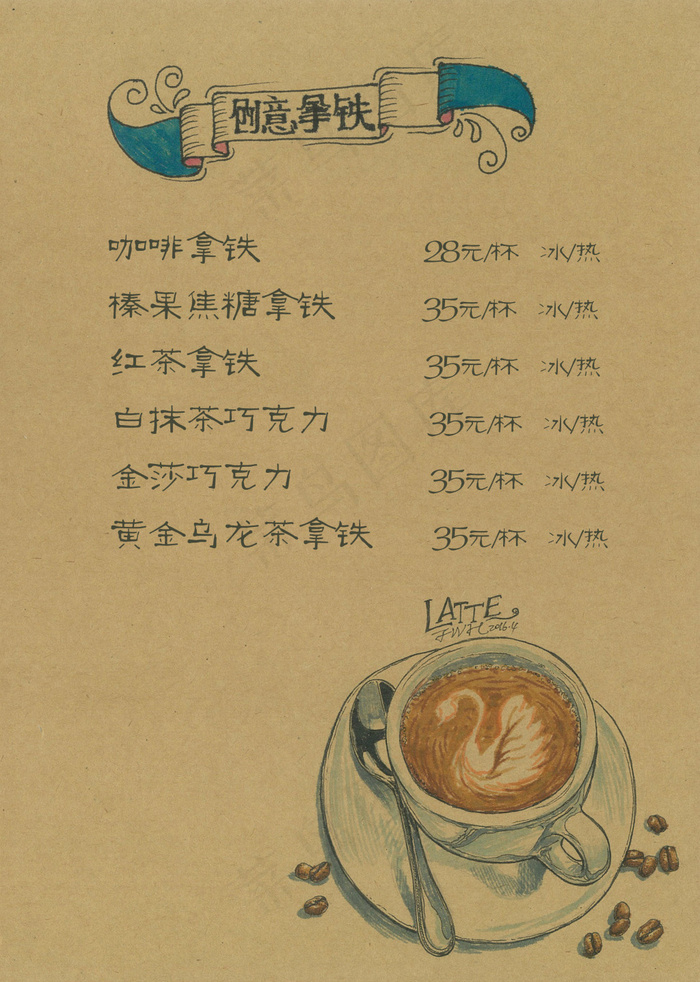 创意拿铁
咖啡拿铁 28元/杯 冰/热
榛果焦糖拿铁 35元/杯 冰/热
红茶拿铁 35元/杯 冰/热
白抹茶巧克力 35元/杯 冰/热
金莎巧克力 35元/杯 冰/热
黄金乌龙茶拿铁 35元/杯 冰/热
LATTE
2016.4